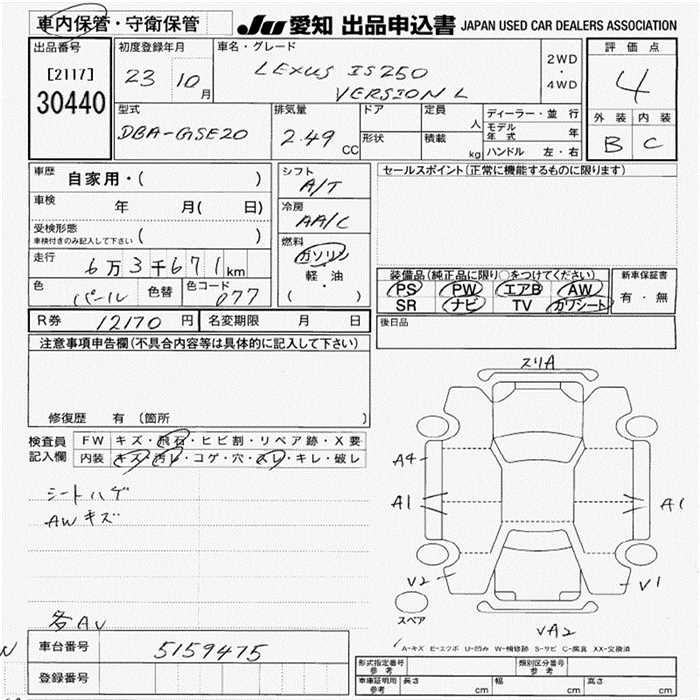 車内保管・守衛保管
JU 愛知 出品申込書 JAPAN USED CAR DEALERS ASSOCIATION
出品番号
[2117]
30440
初度登録年月
23 10月
車名・グレード
LEXUS IS250
VERSION L
2WD
・
4WD
評価点
4
外装 内装
B C
型式
DBA-GSE20
排気量
2.49 CC
ドア
形状
定員 人
積載 kg
ディーラー・並行
モデル年式 年
ハンドル 左・右
車歴 自家用・( )
車検 年 月( 日)
受検形態
車検付きのみ記入して下さい ( )
走行 6万3千671km
色 パール 色替 色コード 077
シフト A/T
冷房 AA/C
燃料
ガソリン
・
軽・油
( )
セールスポイント(正常に機能するものに限ります)
装備品(純正品に限り○をつけてください)
PS PW エアB AW
SR ナビ TV カワシート
新車保証書
有・無
R券 12170円 名変期限 月 日
後日品
注意事項申告欄(不具合内容等は具体的に記入して下さい)
修復歴 有(箇所 )
検査員記入欄
FW キズ・飛石・ヒビ割・リペア跡・X要
内装 キズ・汚レ・コゲ・穴・スレ・キレ・破レ
シートハゲ
AWキズ
各AU
スリA
A4
A1
A1
V2
V1
VA2
スペア
A-キズ E-エクボ U-凹み W-補修跡 S-サビ C-腐食 XX-交換済
車台番号 5159475
登録番号
形式指定番号
参考
類別区分番号
参考
車庫証明用
参考
長さ cm 幅 cm 高さ cm